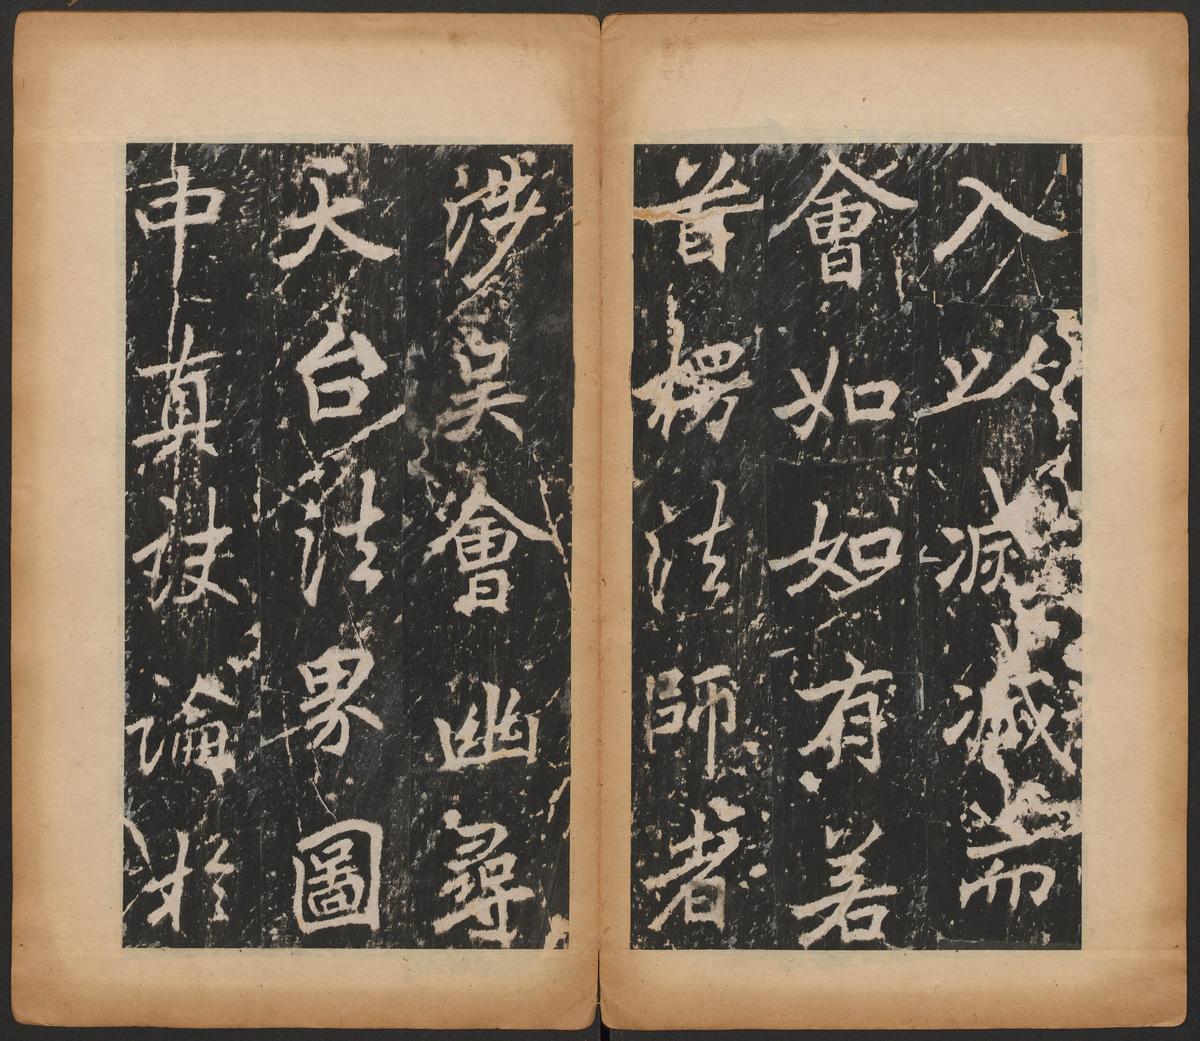 入以滅滅而
會如如有若
首楞法師者
涉吳會幽尋
天台法界圖
中真訣論於